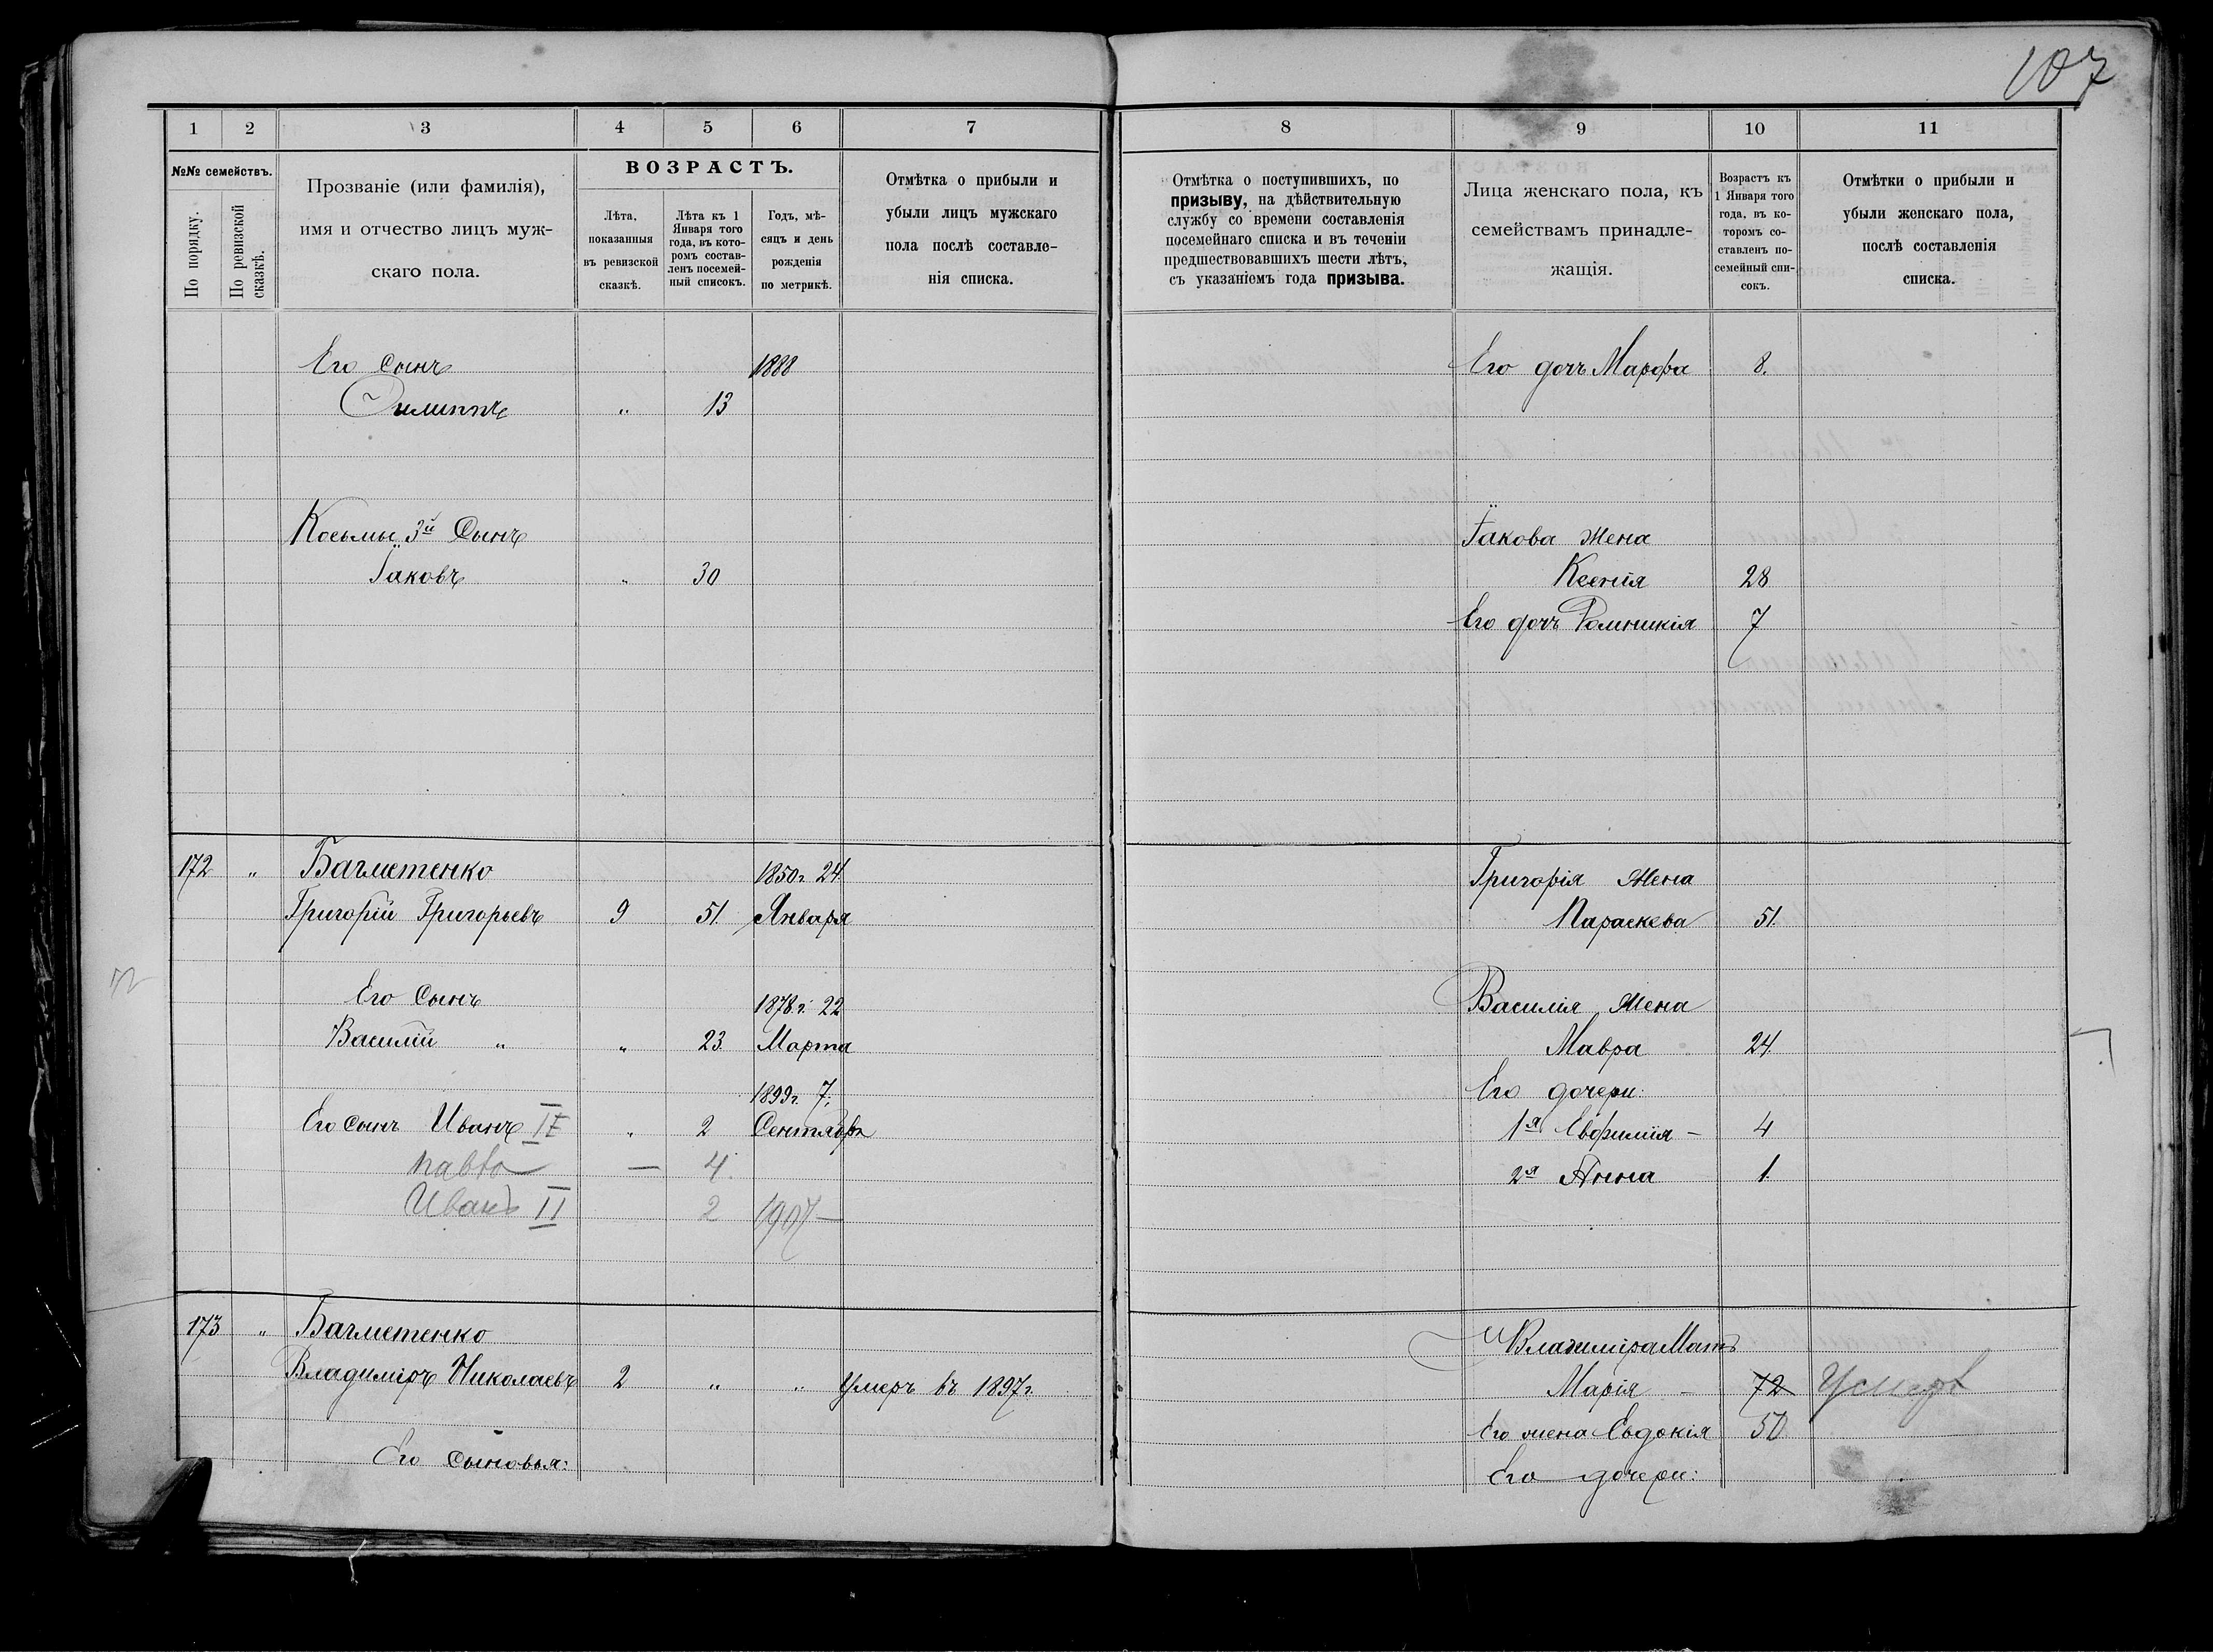 107
1 2 3 4 5 6 7 8 9 10 11
№№ семействъ.
По порядку.
По ревизской сказкѣ.
Прозваніе (или фамилія),
имя и отчество лицъ муж-
скаго пола.
ВОЗРАСТЪ.
Лѣта,
показанныя
въ ревизской
сказкѣ.
Лѣта къ 1
Января того
года, въ кото-
ромъ состав-
ленъ посемей-
ный списокъ.
Годъ, мѣ-
сяцъ и день
рожденія
по метрикѣ.
Отмѣтка о прибыли и
убыли лицъ мужскаго
пола послѣ составле-
нія списка.
Отмѣтка о поступившихъ, по
призыву, на дѣйствительную
службу со времени составленія
посемейнаго списка и въ теченіи
предшествовавшихъ шести лѣтъ,
съ указаніемъ года призыва.
Лица женскаго пола, къ
семействамъ принадле-
жащія.
Возрастъ къ
1 Января того
года, въ ко-
торомъ со-
ставленъ по-
семейный спи-
сокъ.
Отмѣтки о прибыли и
убыли женскаго пола,
послѣ составленія
списка.
Его Сынъ 1888 Его дочь Марфа 8.
Филиппъ " 13
Косьмы 3й Сынъ Іакова Жена
Іаковъ " 30 Ксенія 28
Его дочь 7
172 " Багметенко 1850 г. 24 Григорія Жена
Григорій Григорьевъ 9 51. Января Параскева 51.
Его Сынъ 1878 г. 22 Василія Жена
Василій " " 23. Марта Мавра 24.
1899 г. 7. Его дочери:
Его сынъ Иванъ " 2 Сентября 1я Евфимія – 4
— 4. 2я Анна 1.
Иванъ II 2 1907 —
173 " Багметенко Владиміра Мать
Владиміръ Николаевъ 2 " " Умеръ въ 1897 г. Марія – 72
Его жена Евдокія 50
Его Сыновья: Его дочери: